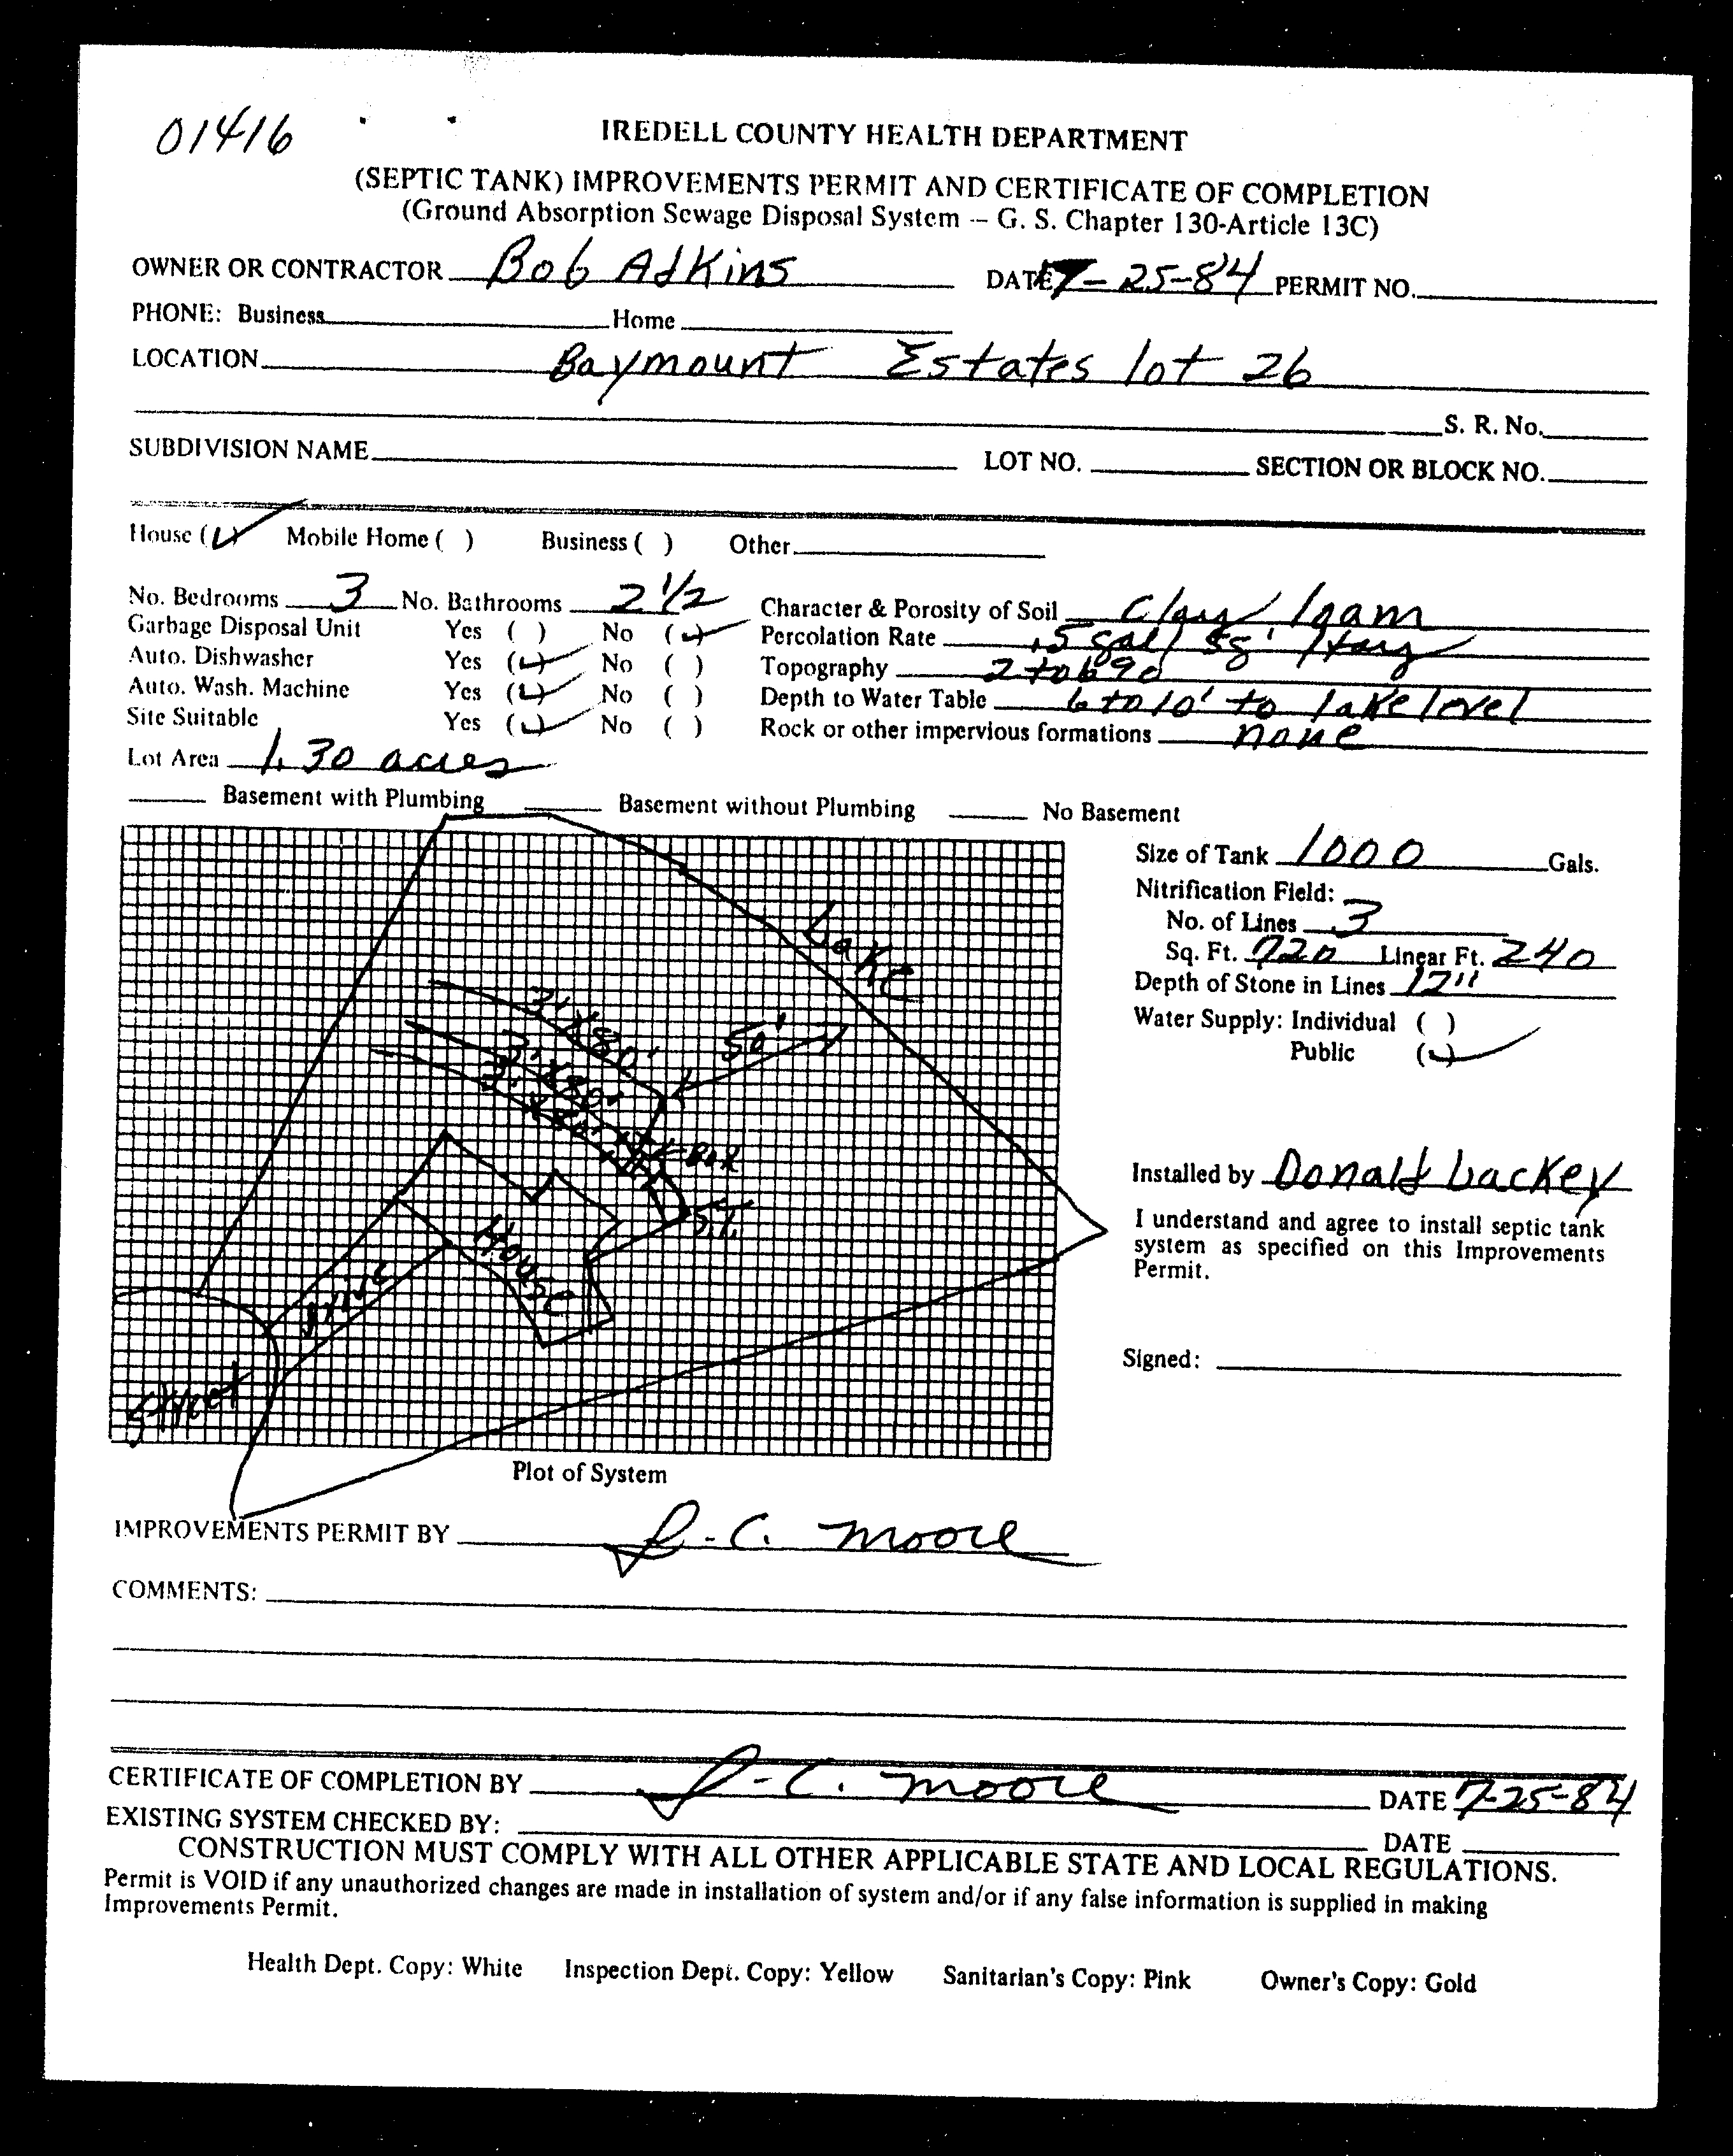 01416
IREDELL COUNTY HEALTH DEPARTMENT
(SEPTIC TANK) IMPROVEMENTS PERMIT AND CERTIFICATE OF COMPLETION
(Ground Absorption Sewage Disposal System -- G. S. Chapter 130-Article 13C)
OWNER OR CONTRACTOR Bob Adkins DATE 7-25-84 PERMIT NO.
PHONE: Business Home
LOCATION Baymount Estates lot 26
S. R. No.
SUBDIVISION NAME LOT NO. SECTION OR BLOCK NO.
House (✓) Mobile Home ( ) Business ( ) Other
No. Bedrooms 3 No. Bathrooms 2 1/2 Character & Porosity of Soil Clay loam
Garbage Disposal Unit Yes ( ) No (✓) Percolation Rate .5 gal/ sq'
Auto. Dishwasher Yes (✓) No ( ) Topography 2 to 6%
Auto. Wash. Machine Yes (✓) No ( ) Depth to Water Table 6 to 10' to lake level
Site Suitable Yes (✓) No ( ) Rock or other impervious formations none
Lot Area 1.30 acres
Basement with Plumbing Basement without Plumbing No Basement
Size of Tank 1000 Gals.
Nitrification Field:
No. of Lines 3
Sq. Ft. 720 Linear Ft. 240
Depth of Stone in Lines 12"
Water Supply: Individual ( )
Public (✓)
Lake
50'
3' X 80'
3' X 80'
3' X 80'
Box
S.T.
House
drive
street
Installed by Donald Lackey
I understand and agree to install septic tank
system as specified on this Improvements
Permit.
Signed:
Plot of System
IMPROVEMENTS PERMIT BY J-C. Moore
COMMENTS:
CERTIFICATE OF COMPLETION BY J-C. Moore DATE 7-25-84
EXISTING SYSTEM CHECKED BY: DATE
CONSTRUCTION MUST COMPLY WITH ALL OTHER APPLICABLE STATE AND LOCAL REGULATIONS.
Permit is VOID if any unauthorized changes are made in installation of system and/or if any false information is supplied in making
Improvements Permit.
Health Dept. Copy: White Inspection Dept. Copy: Yellow Sanitarian's Copy: Pink Owner's Copy: Gold